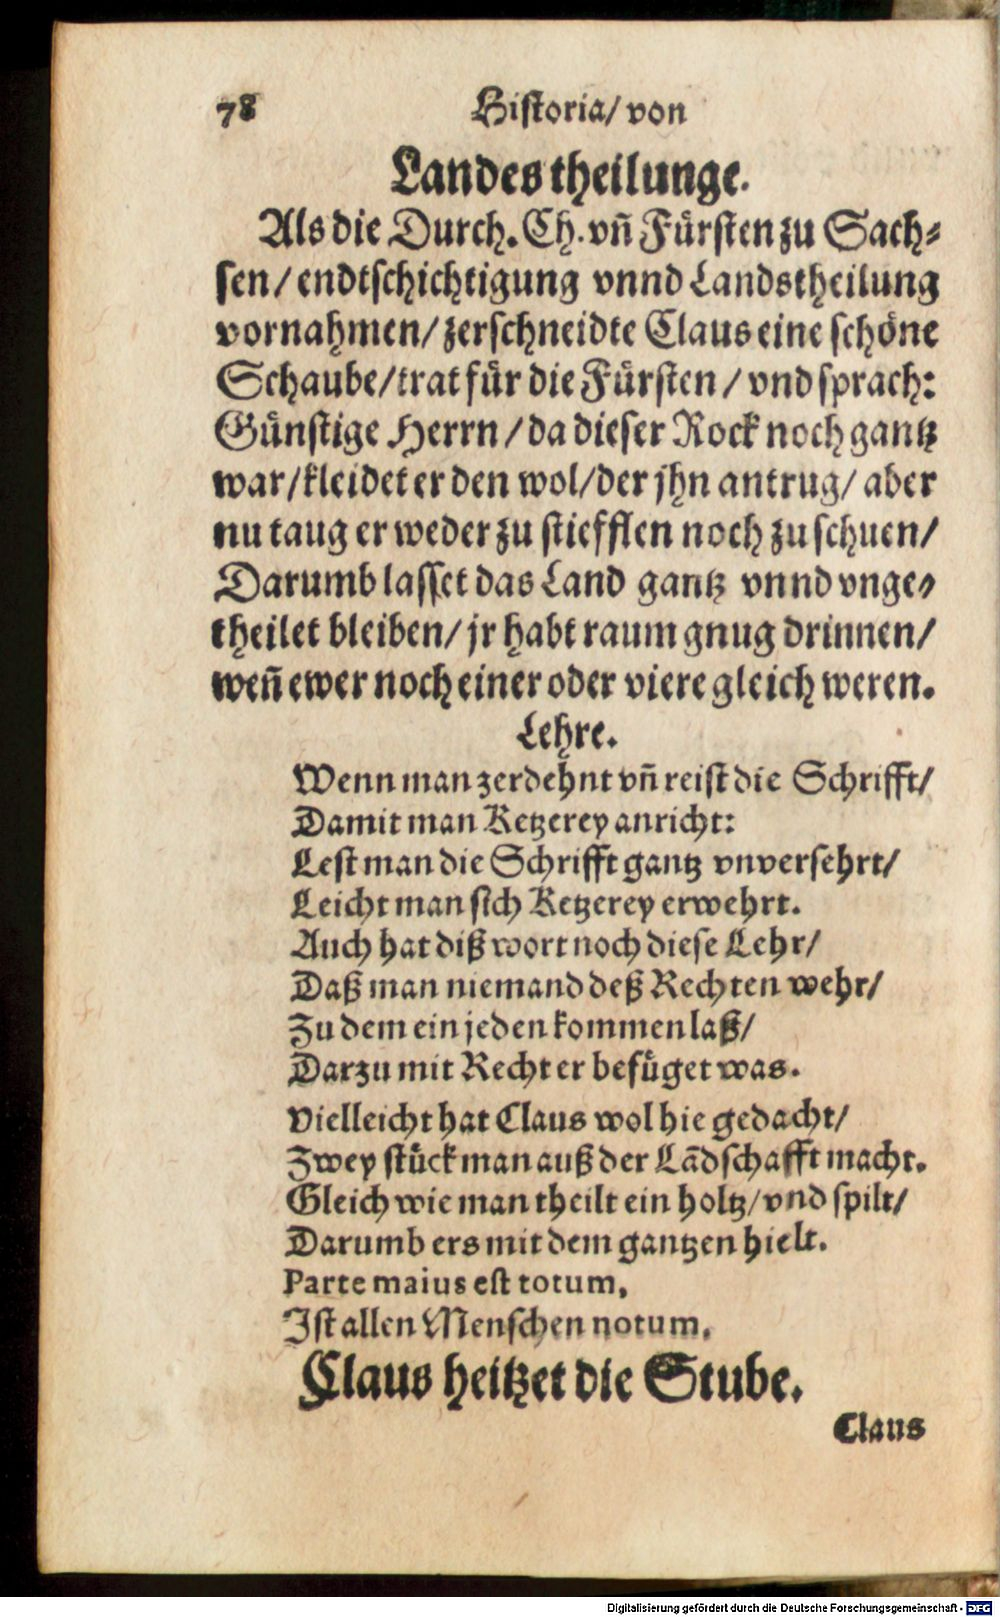 78 Historia/ von
Landes theilunge.
Als die Durch. Ch. vñ Fürsten zu Sach-
sen/ endtschichtigung vnnd Landstheilung
vornahmen/ zerschneidte Claus eine schöne
Schaube/ trat für die Fürsten/ vnd sprach:
Günstige Herrn/ da dieser Rock noch gantz
war/ kleidet er den wol/ der jhn antrug/ aber
nu taug er weder zu stiefflen noch zu schuen/
Darumb lasset das Land gantz vnnd vnge-
theilet bleiben/ jr habt raum gnug drinnen/
weñ ewer noch einer oder viere gleich weren.
Lehre.
Wenn man zerdehnt vñ reist die Schrifft/
Damit man Ketzerey anricht:
Lest man die Schrifft gantz vnversehrt/
Leicht man sich Ketzerey erwehrt.
Auch hat diß wort noch diese Lehr/
Daß man niemand deß Rechten wehr/
Zu dem ein jeden kommen laß/
Darzu mit Recht er befüget was.
Vielleicht hat Claus wol hie gedacht/
Zwey stück man auß der Lãdschafft macht.
Gleich wie man theilt ein holtz/ vnd spilt/
Darumb ers mit dem gantzen hielt.
Parte maius est totum,
Ist allen Menschen notum.
Claus heitzet die Stube.
Claus
Digitalisierung gefördert durch die Deutsche Forschungsgemeinschaft - DFG